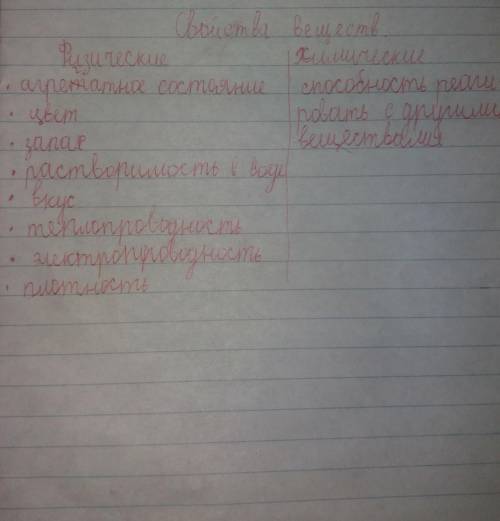 Свойства веществ.
Физические
• агрегатное состояние
• цвет
• запах
• растворимость в воде
• вкус
• теплопроводность
• электропроводность
• плотность
Химические
способность реаги
ровать с другими
веществами